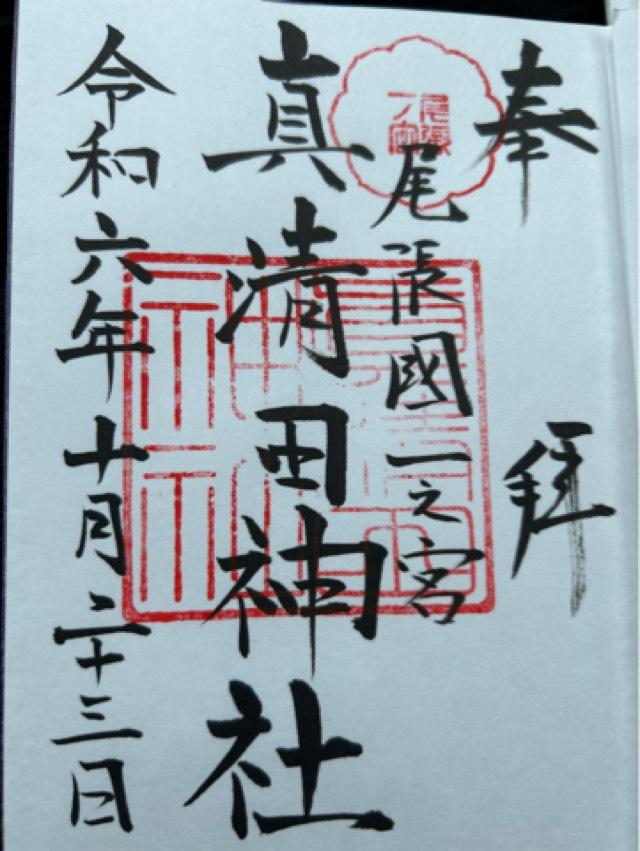 奉拝
尾張國一之宮
真清田神社
令和六年十月二十三日
尾張
一ノ宮